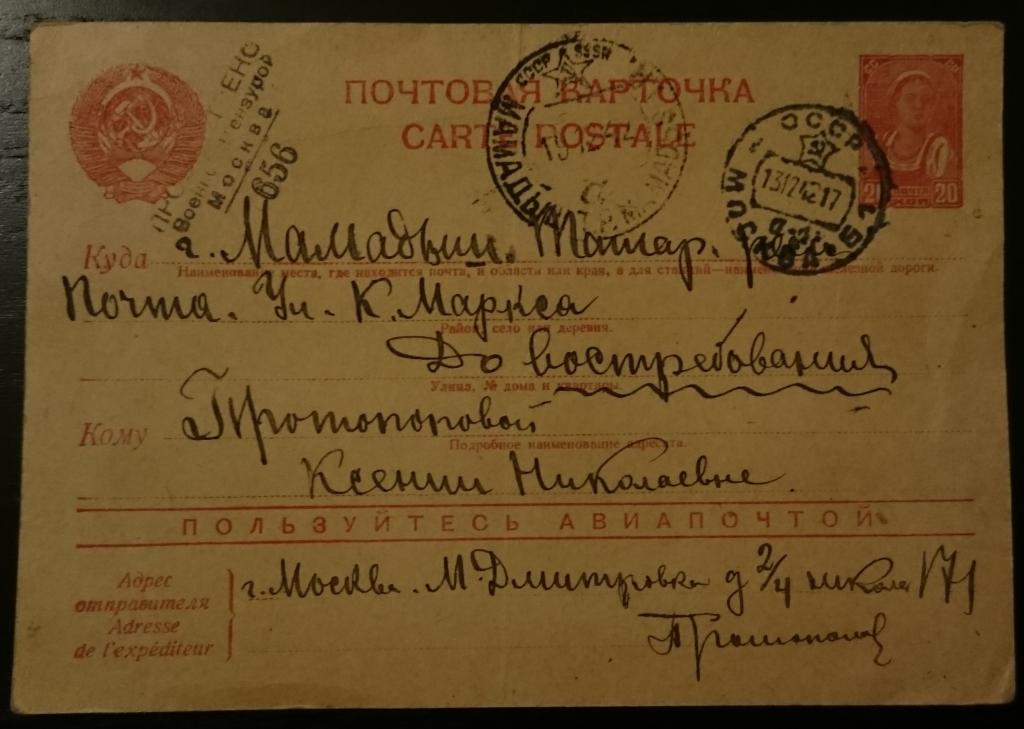 ПРО ЕНО
Военной Цензурой
Москва
656
ПОЧТОВАЯ КАРТОЧКА
CARTE POSTALE
СССР
МАМАДЫШ
СССР
131242 17
МОСКВА
20 20
КОП
Куда г. Мамадыш. Татар.
Наименование места, где находится почта, и области или края, а для станций—наименование железной дороги.
Почта. Ул. К. Маркса
Район, село или деревня.
До востребования
Улица, № дома и квартиры.
Кому Протопоповой
Подробное наименование адресата.
Ксении Николаевне.
ПОЛЬЗУЙТЕСЬ АВИАПОЧТОЙ
Адрес отправителя
Adresse de l'expéditeur
г. Москва. М. Дмитровка д 2/4 школа 171
Протопопов